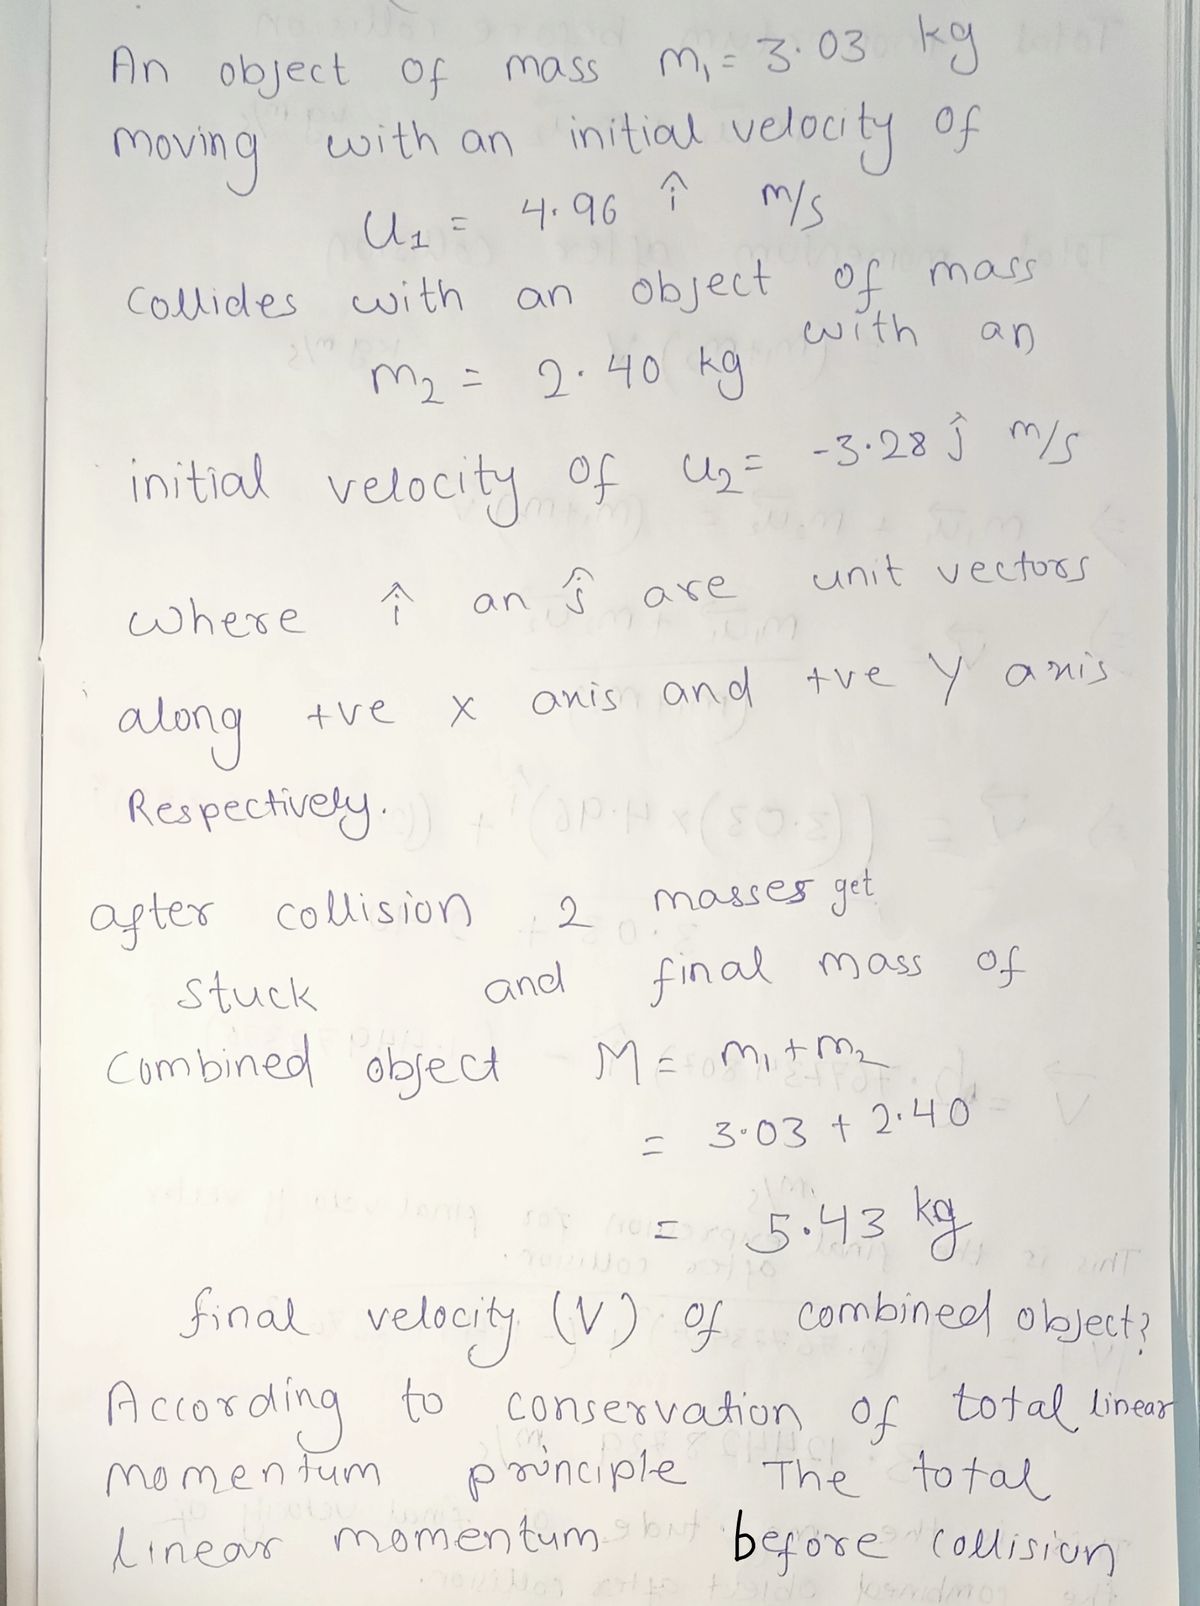 An object of mass m₁ = 3.03 kg
moving with an initial velocity of
U₁ = 4.96 î m/s
collides with an object of mass
m₂ = 2.40 kg with an
initial velocity of u₂ = -3.28 ĵ m/s
where î an ĵ are unit vectors
along +ve x axis and +ve y axis
Respectively.
after collision 2 masses get
stuck and final mass of
combined object M = m₁ + m₂
= 3.03 + 2.40
= 5.43 kg
final velocity (V) of combined object?
According to conservation of total linear
momentum principle The total
linear momentum before collision